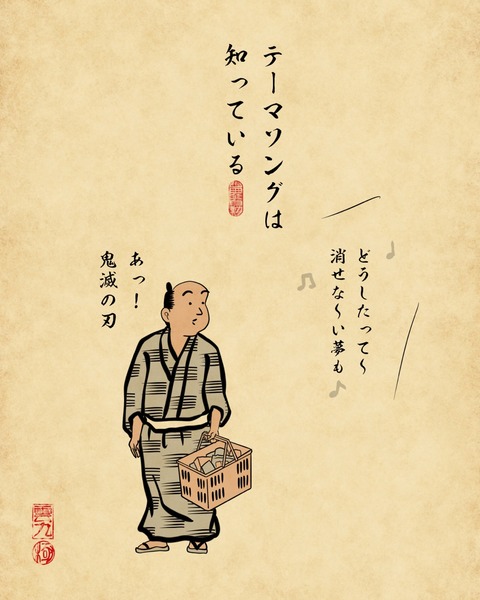 テーマソングは
知っている
どうしたって〜
消せな〜い夢も
あっ！
鬼滅の刃